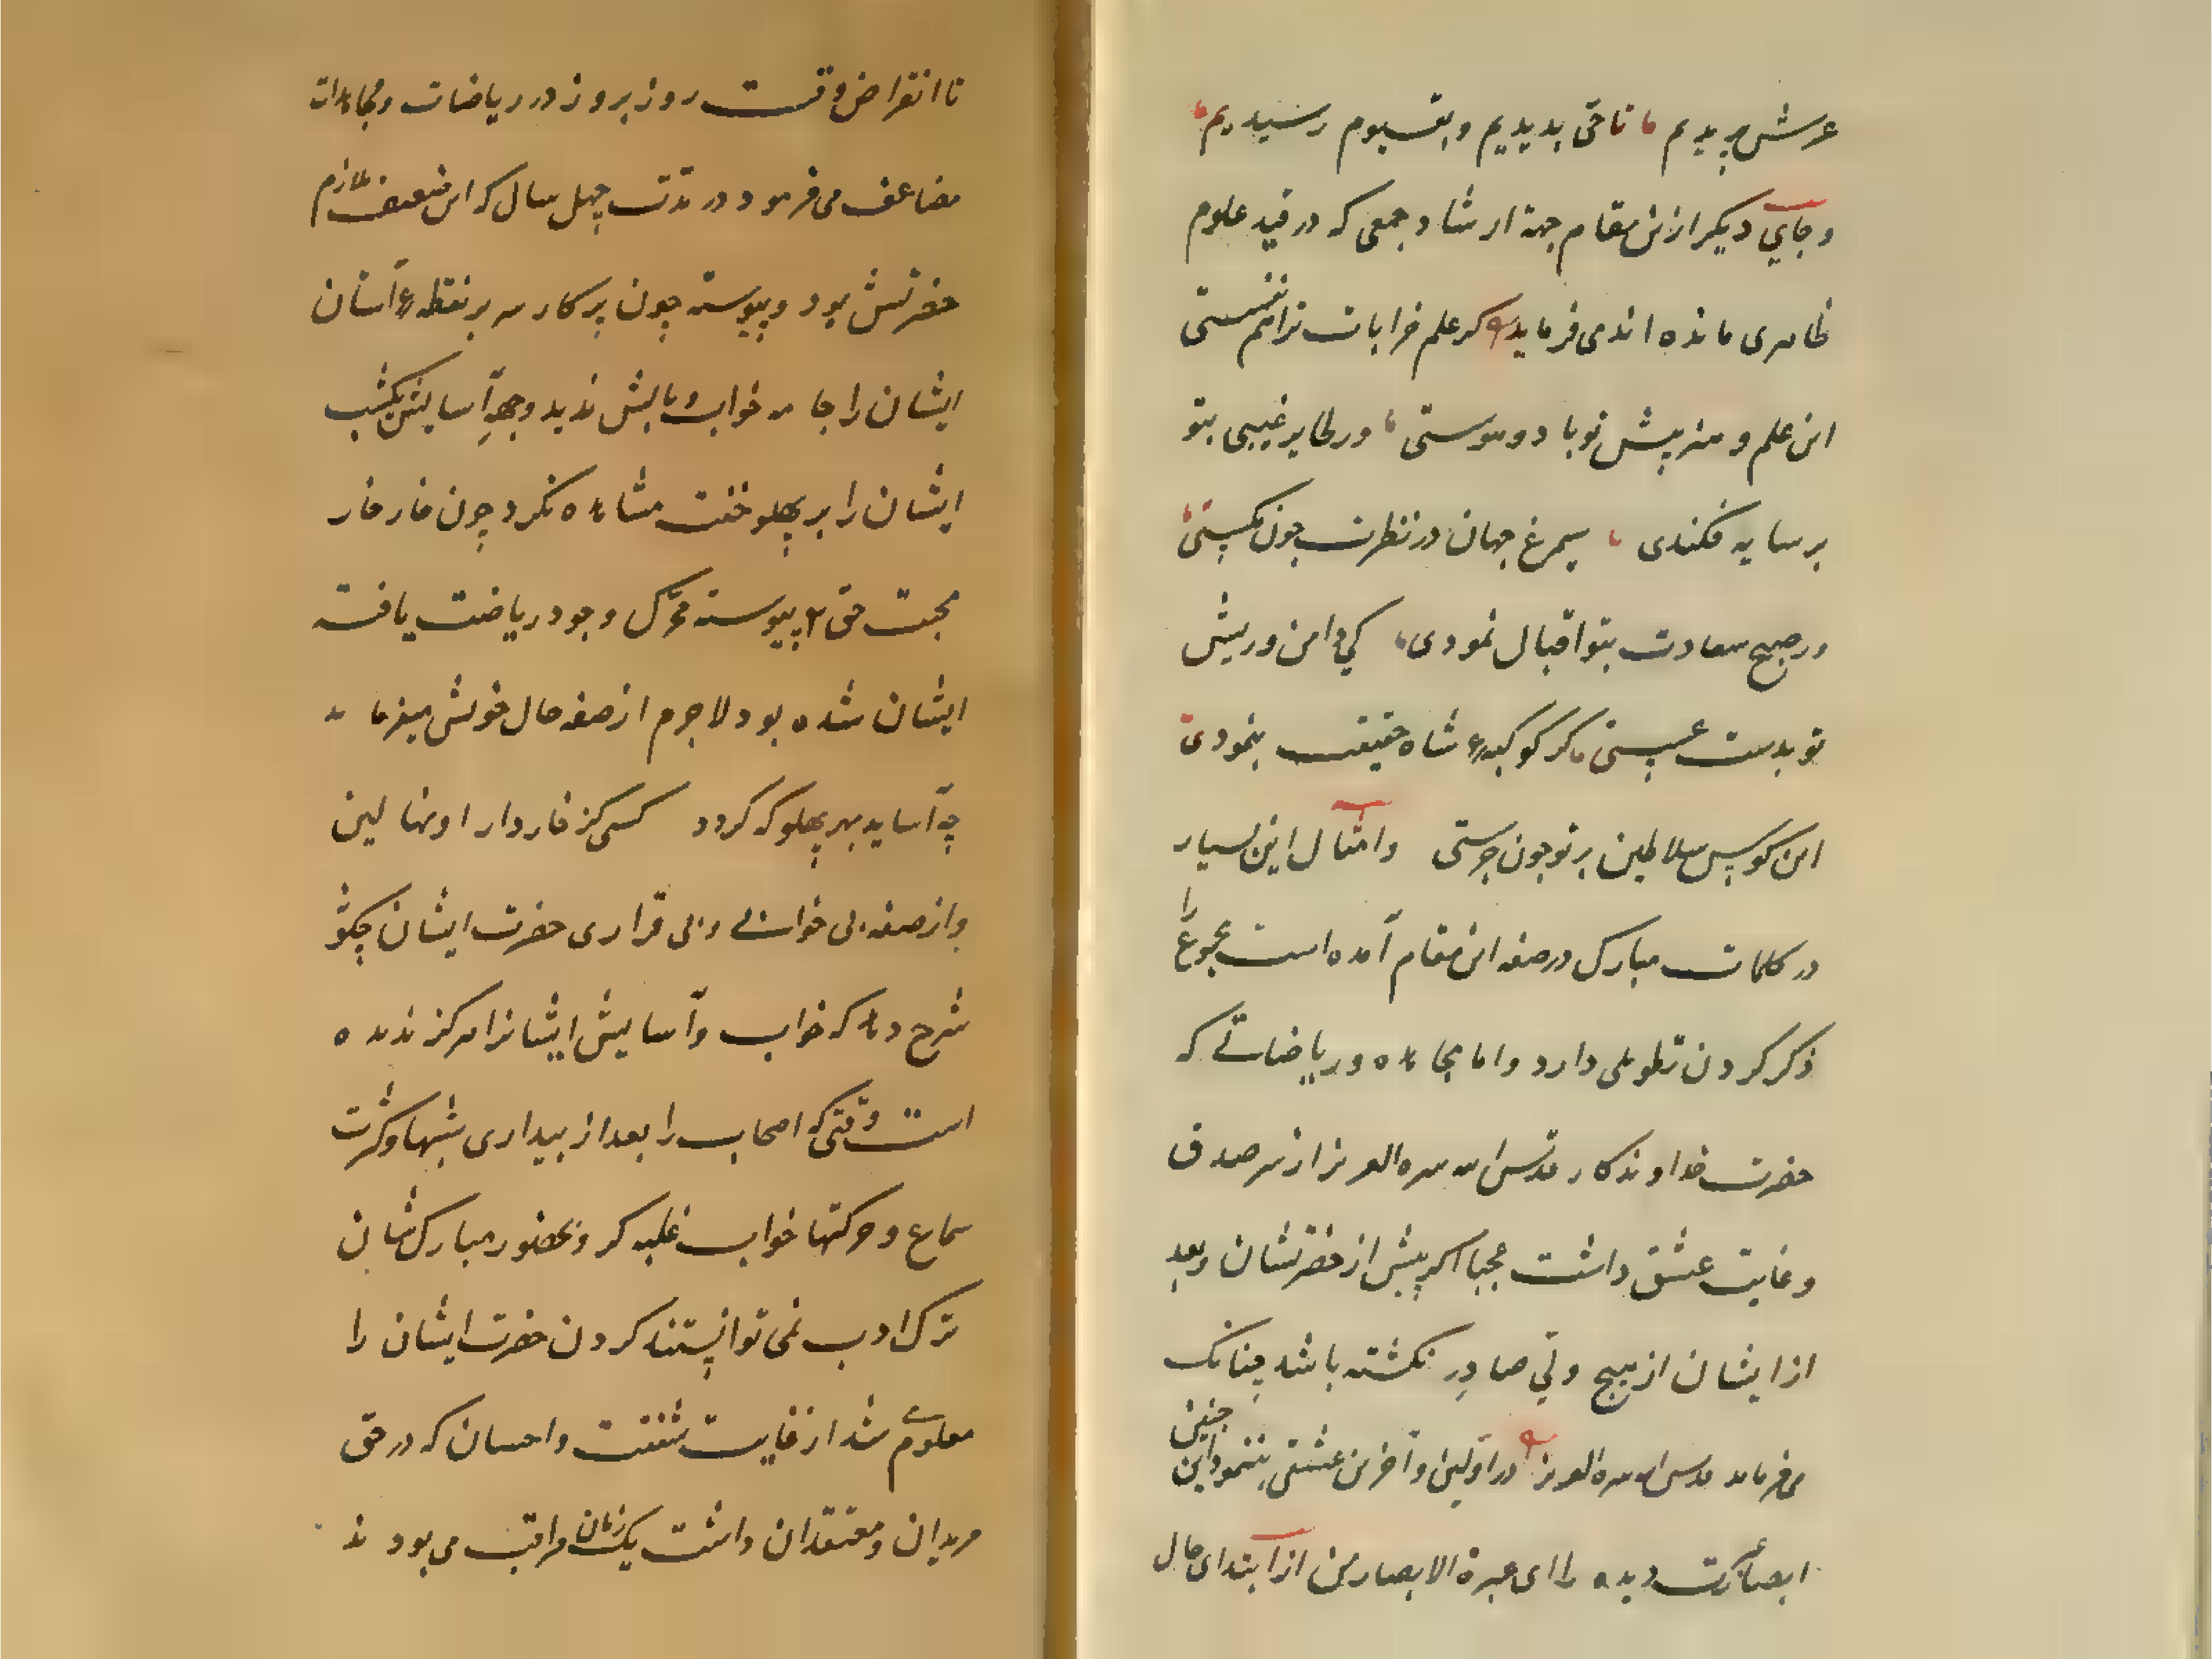 عرش پریدیم ما تا حق بدیدیم و بقیوم رسیدیم
و جایی دیکر ازین مقام جهة ارشاد جمعی که در قید علوم
ظاهری مانده اند می فرماید کر علم خرابات ترا هم نفسستی
این علم و هنر پیش تو باد و هوستی ور طایر غیبی بتو
بر سایه فکندی سیمرغ جهان در نظرت چون مکسستی
ور صبح سعادت بتو اقبال نمودی کی دامن و ریش
تو بدست عسستی کر کوکبهٔ شاه حقیقت بنمودی
این کوس سلاطین بر تو چون جرستی و امثال این بسیار
در کلمات مبارک در صفه این مقام آمده است مجموع را
ذکر کردن تطویلی دارد و اما مجاهده و ریاضاتی که
حضرت خداوندکار قدس الله سره العزیز از سر صدق
و غایت عشق داشت عجبا اکر پیش از حضرتشان و بعد
از ایشان از هیچ ولی صادر نکشته باشد چنانک
می فرماید قدس الله سره العزیز در اولین و آخرین عشقی بننمود این چنین
ابصار عبرت دیده را ای عبرة الابصار من از ابتدای حال
تا انقراض وقت روز بروز در ریاضات و مجاهدات
مضاعف می فرمود در مدت چهل سال که این ضعیف ملازم
حضرتش بود و پیوسته چون پرکار سر بر نقطهٔ آستان
ایشان را جامه خواب و بالش ندید و جهة آسایش یکشب
ایشان را بر پهلو خفت مشاهده نکرد چون خار خار
محبت حق پیوسته محرک وجود ریاضت یافته
ایشان شده بود لاجرم از صفه حال خویش میفرماید
چه آساید بهر پهلو که کردد کسی کز خار دارد او نهالین
و از صفه بی خوابی و بی قراری حضرت ایشان چکو
شرح دهد که خواب و آسایش ایشانرا هرکز ندیده
است وقتی که اصحاب را بعد از بیداری شبها و کثرت
سماع و حرکتها خواب غلبه کر و بحضور مبارک شان
ترک ادب نمی توانستند کردن حضرت ایشان را
معلوم شد از غایت شفقت و احسان که در حق
مریدان و معتقدان داشت یک زمان مراقب می بودند